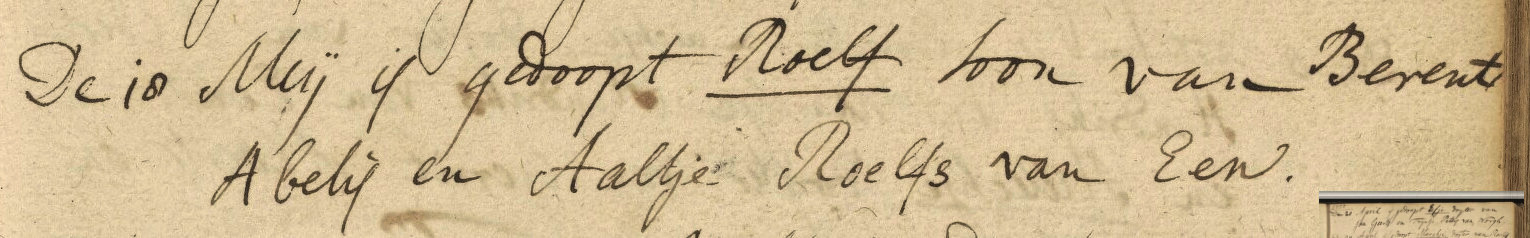 De 18 Meij is gedoopt Roelf soon van Berent
Abelis en Aaltje Roelfs van Een.